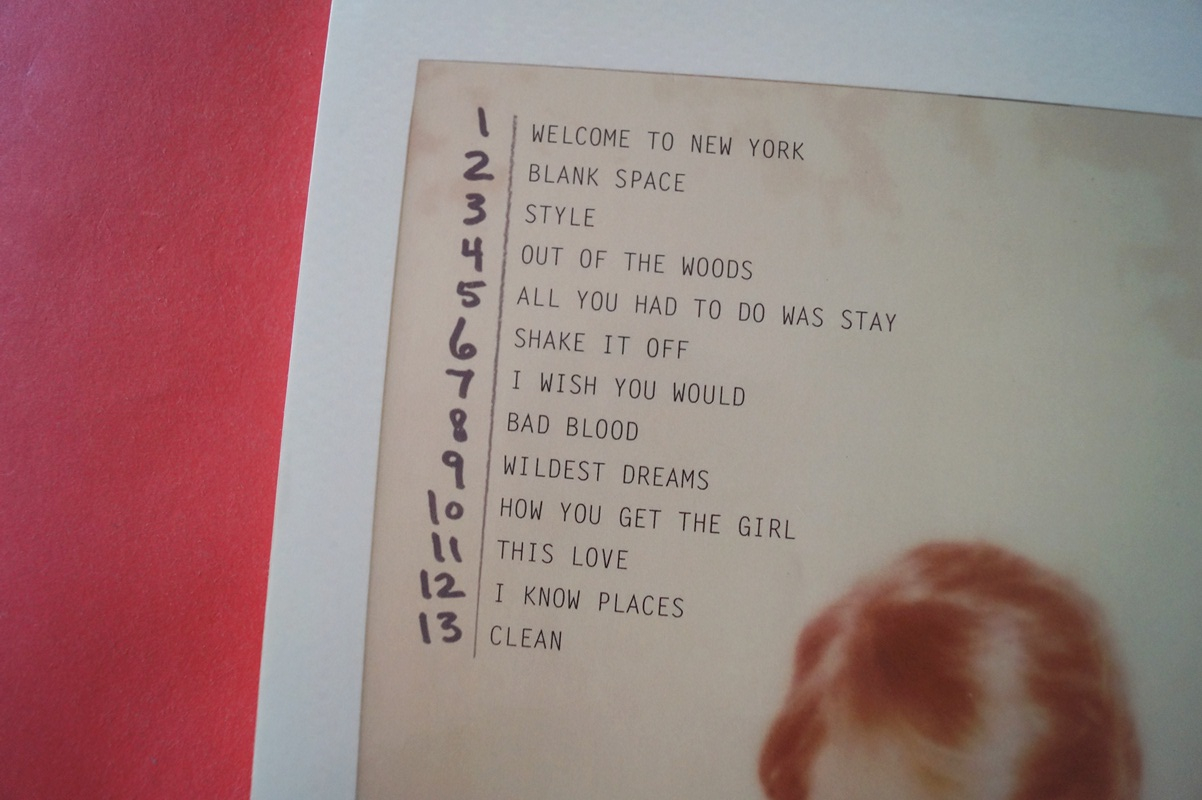 1 WELCOME TO NEW YORK
2 BLANK SPACE
3 STYLE
4 OUT OF THE WOODS
5 ALL YOU HAD TO DO WAS STAY
6 SHAKE IT OFF
7 I WISH YOU WOULD
8 BAD BLOOD
9 WILDEST DREAMS
10 HOW YOU GET THE GIRL
11 THIS LOVE
12 I KNOW PLACES
13 CLEAN